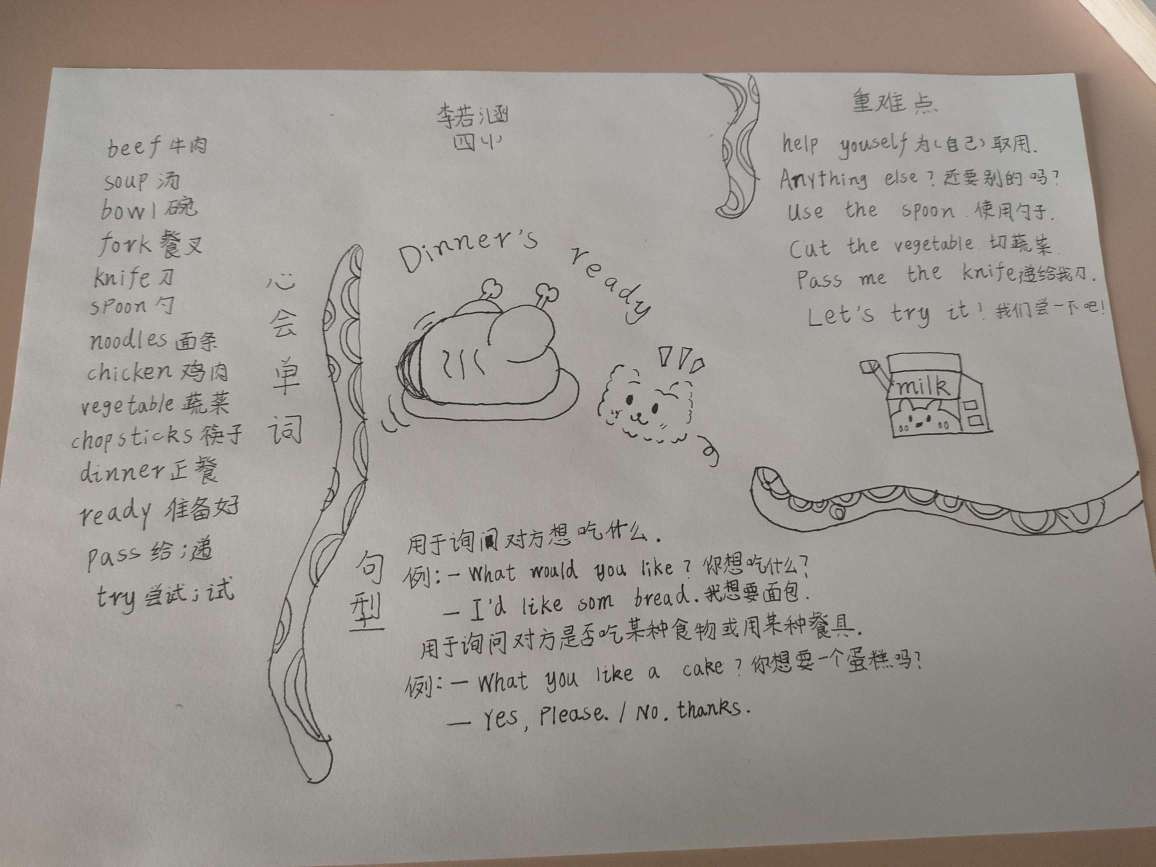 李若涵
四小
beef 牛肉
soup 汤
bowl 碗
fork 餐叉
knife 刀
spoon 勺
noodles 面条
chicken 鸡肉
vegetable 蔬菜
chopsticks 筷子
dinner 正餐
ready 准备好
pass 给;递
try 尝试;试
心会单词
Dinner's ready
重难点
help youself 为(自己)取用.
Anything else?还要别的吗?
Use the spoon. 使用勺子.
Cut the vegetable. 切蔬菜.
Pass me the knife 递给我刀.
Let's try it! 我们尝一下吧!
milk
句型
用于询问对方想吃什么.
例:- What would you like? 你想吃什么?
- I'd like som bread. 我想要面包.
用于询问对方是否吃某种食物或用某种餐具.
例:- What you like a cake? 你想要一个蛋糕吗?
- Yes, Please. / No. thanks.